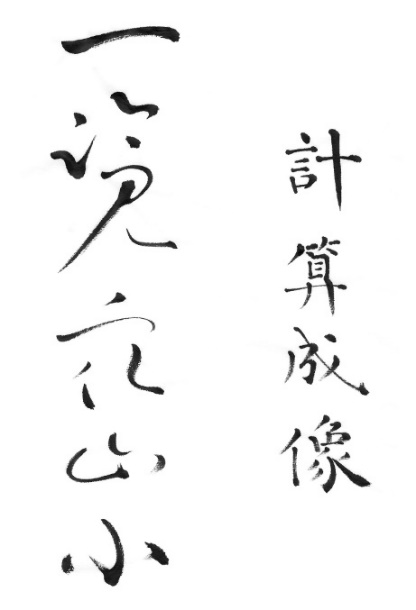 計算成像
一覽眾山小